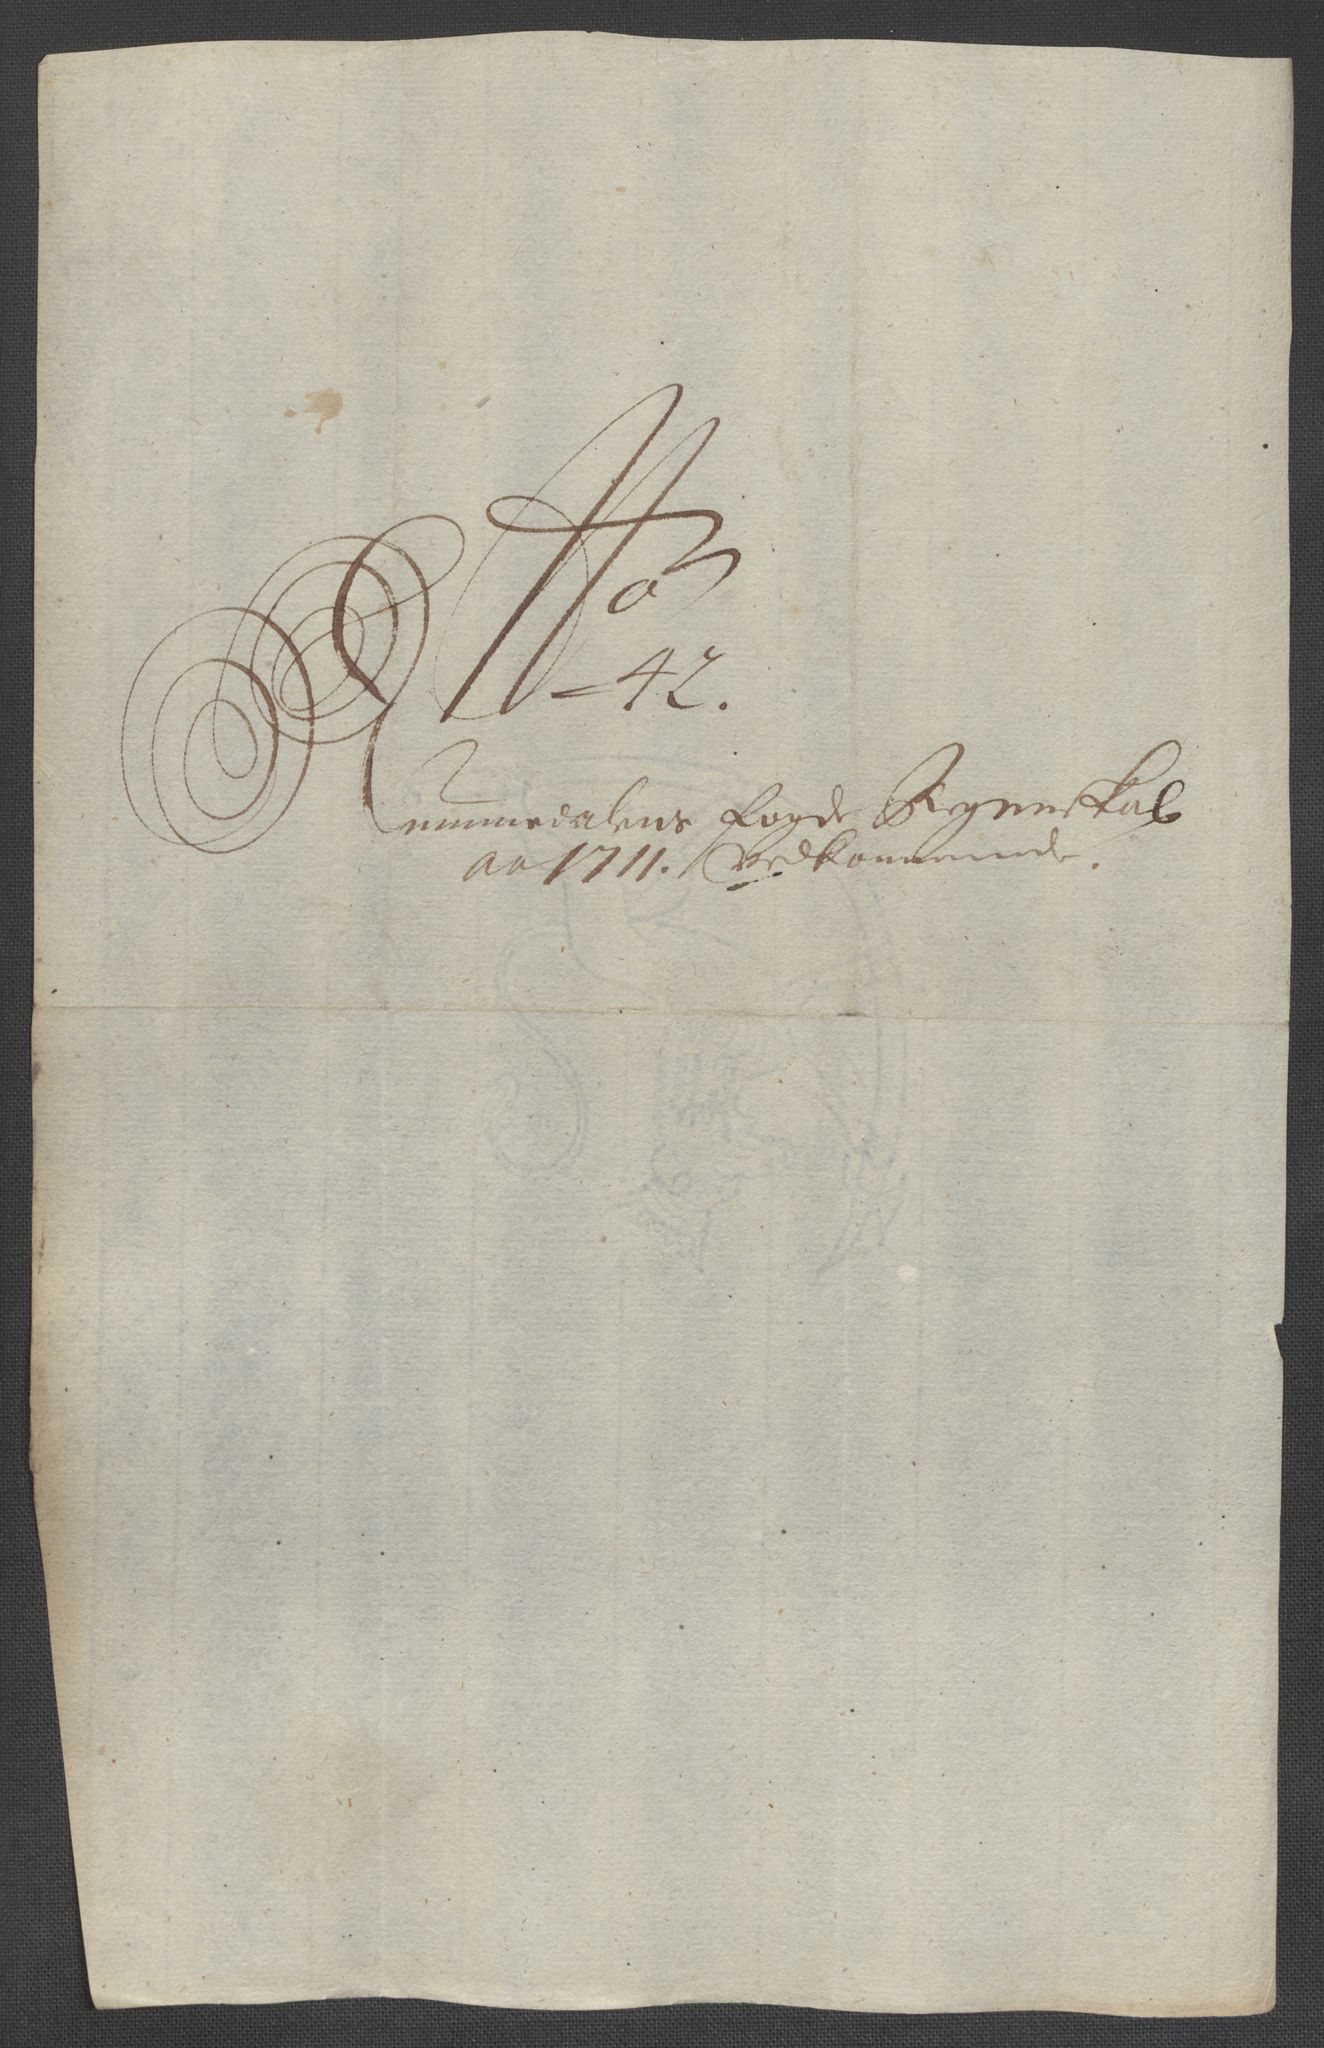 No
42.
Nummedalens fogde Regnskab
ao 1711. Vedkommende.